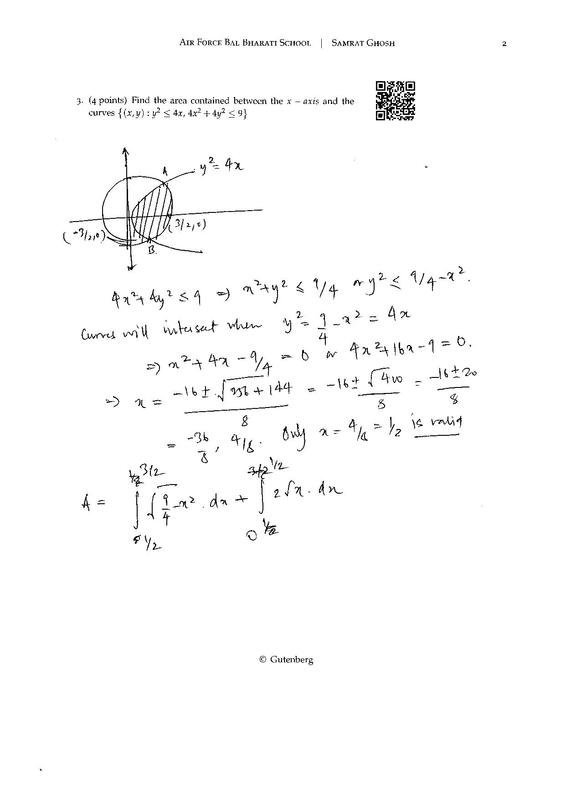 AIR FORCE BAL BHARATI SCHOOL | SAMRAT GHOSH 2
3. (4 points) Find the area contained between the x − axis and the
curves {(x, y) : y² ≤ 4x, 4x² + 4y² ≤ 9}
A
y² = 4x
(3/2,0)
(-3/2,0)
B
4x² + 4y² ≤ 9 ⇒ x² + y² ≤ 9/4 or y² ≤ 9/4 - x².
Curves will intersect when y² = 9/4 - x² = 4x
⇒ x² + 4x - 9/4 = 0 or 4x² + 16x - 9 = 0.
⇒ x = (-16 ± √(256 + 144))/8 = (-16 ± √400)/8 = (-16 ± 20)/8
= -36/8, 4/8. Only x = 4/8 = 1/2 is valid
A = ∫_{1/2}^{3/2} √(9/4 - x²) . dx + ∫_{0}^{1/2} 2√x . dx
© Gutenberg